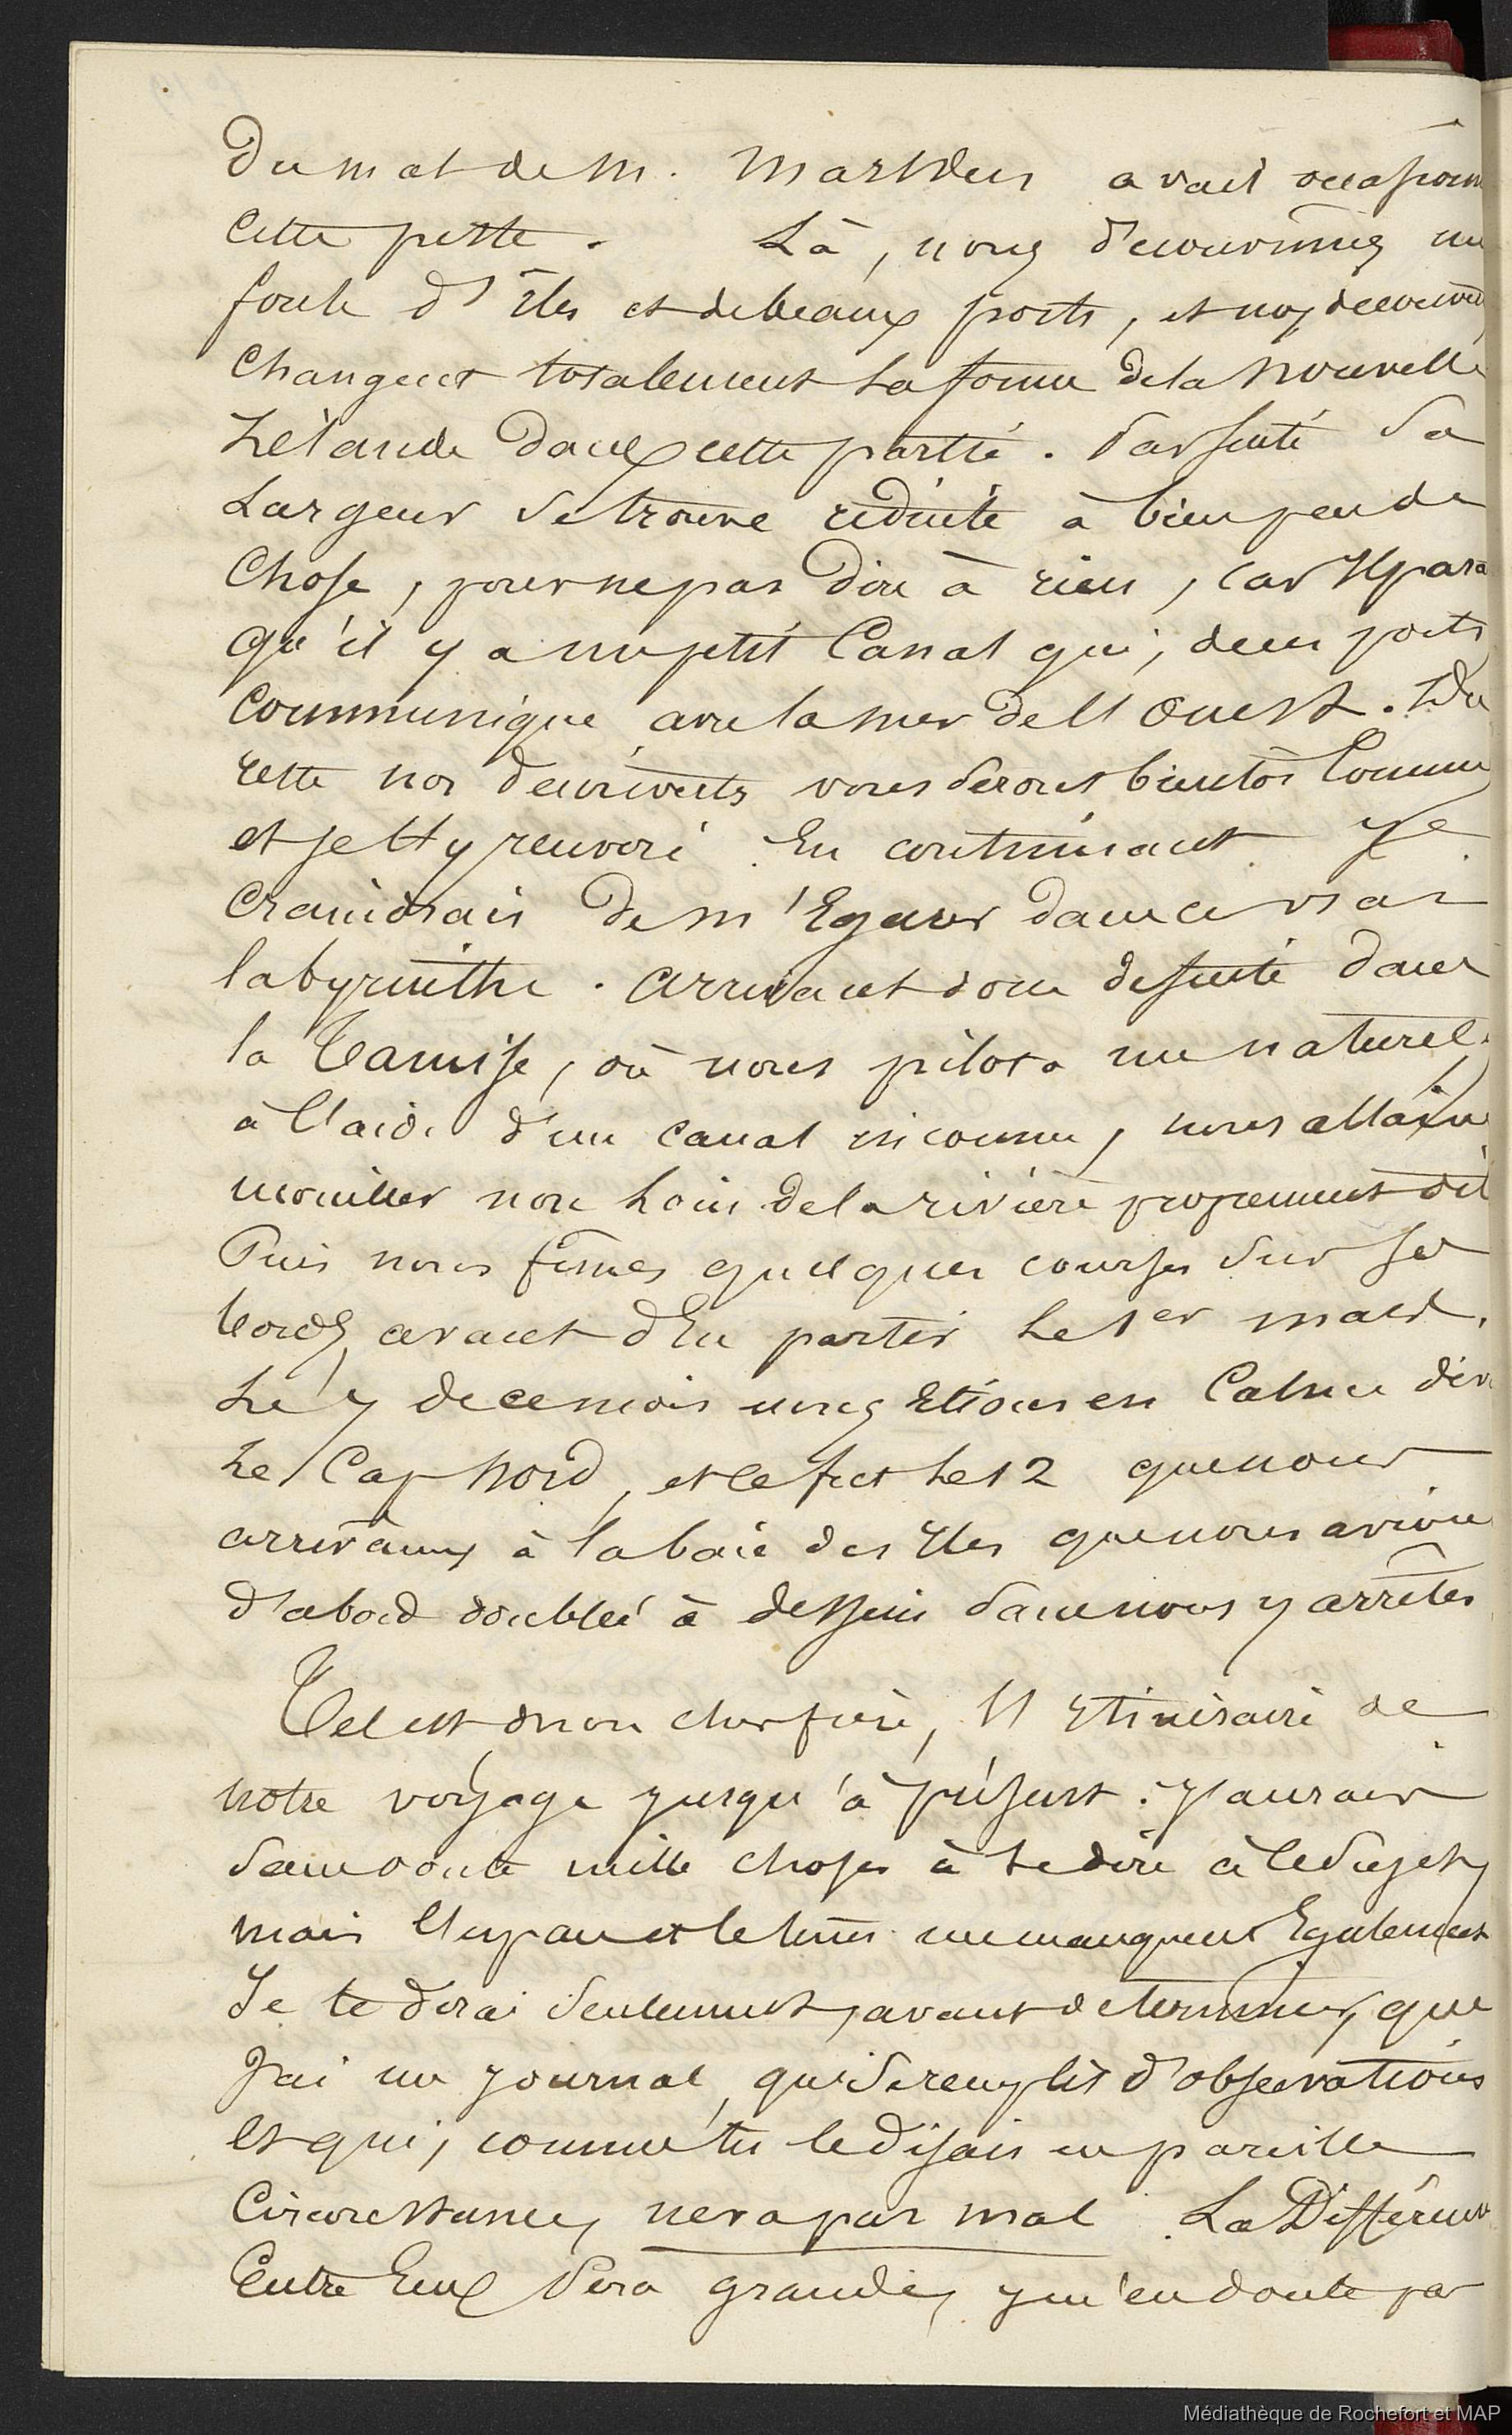 du mat de M. Marsden avait occasionn
cette perte. Là, nous découvrîmes un
foule d'îles et de beaux ports, et nos découvert
changent totalement la forme de la Nouvelle
Zélande dans cette partie. Par suite sa
Largeur se trouve réduite à bien peu de
Chose, pour ne pas dire à rien, car il para
qu'il y a un petit Canal qui, deux ports
communique avec la mer de l'Ouest. Du
reste nos découverts vous seront bientôt connu
et je t'y renvoie. En continuant je
craindrais de m'Egarer dans ce vrai
labyrinthe. Arrivant donc de suite dans
la Tamise, où nous pilota un naturel,
à l'aide d'un canal inconnu, nous allâm
mouiller non loin de la rivière proprement dit
Puis nous fîmes quelques courses sur ses
bords, avant d'En partir Le 1er mars.
Le 7 de ce mois nous Etions en Calme dev
Le Cap Nord, et ce fut Le 12 que nous
arrivâmes à la baie des Iles que nous avion
d'abord doublée à dessein sans nous y arrêter
Tel est mon cher frère, l'Itinéraire de
notre voyage jusqu'à présent. J'aurais
sans doute mille choses à te dire à ce sujet,
mais l'espace et le tems me manquent Egalement
Je te dirai seulement, avant de terminer, que
J'ai un journal, qui se remplit d'observations
Et qui, comme tu le disais en pareille
Circonstance, ne va pas mal. La Différence
Entre Eux sera grande, je n'en doute pas
Médiathèque de Rochefort et MAP